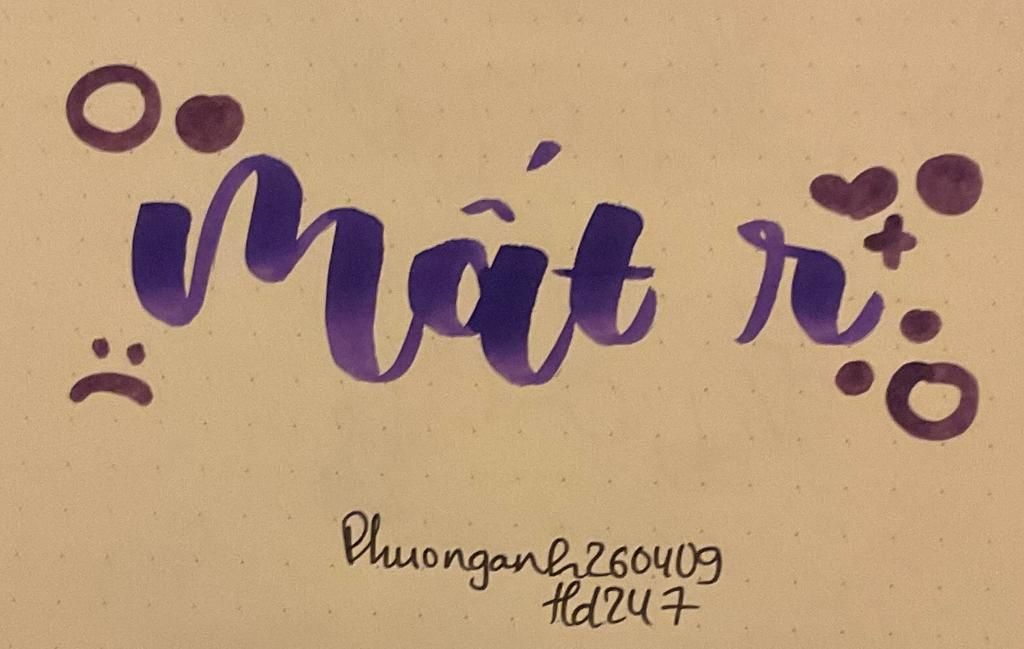 Mất r
Phuonganh260409
Hd247